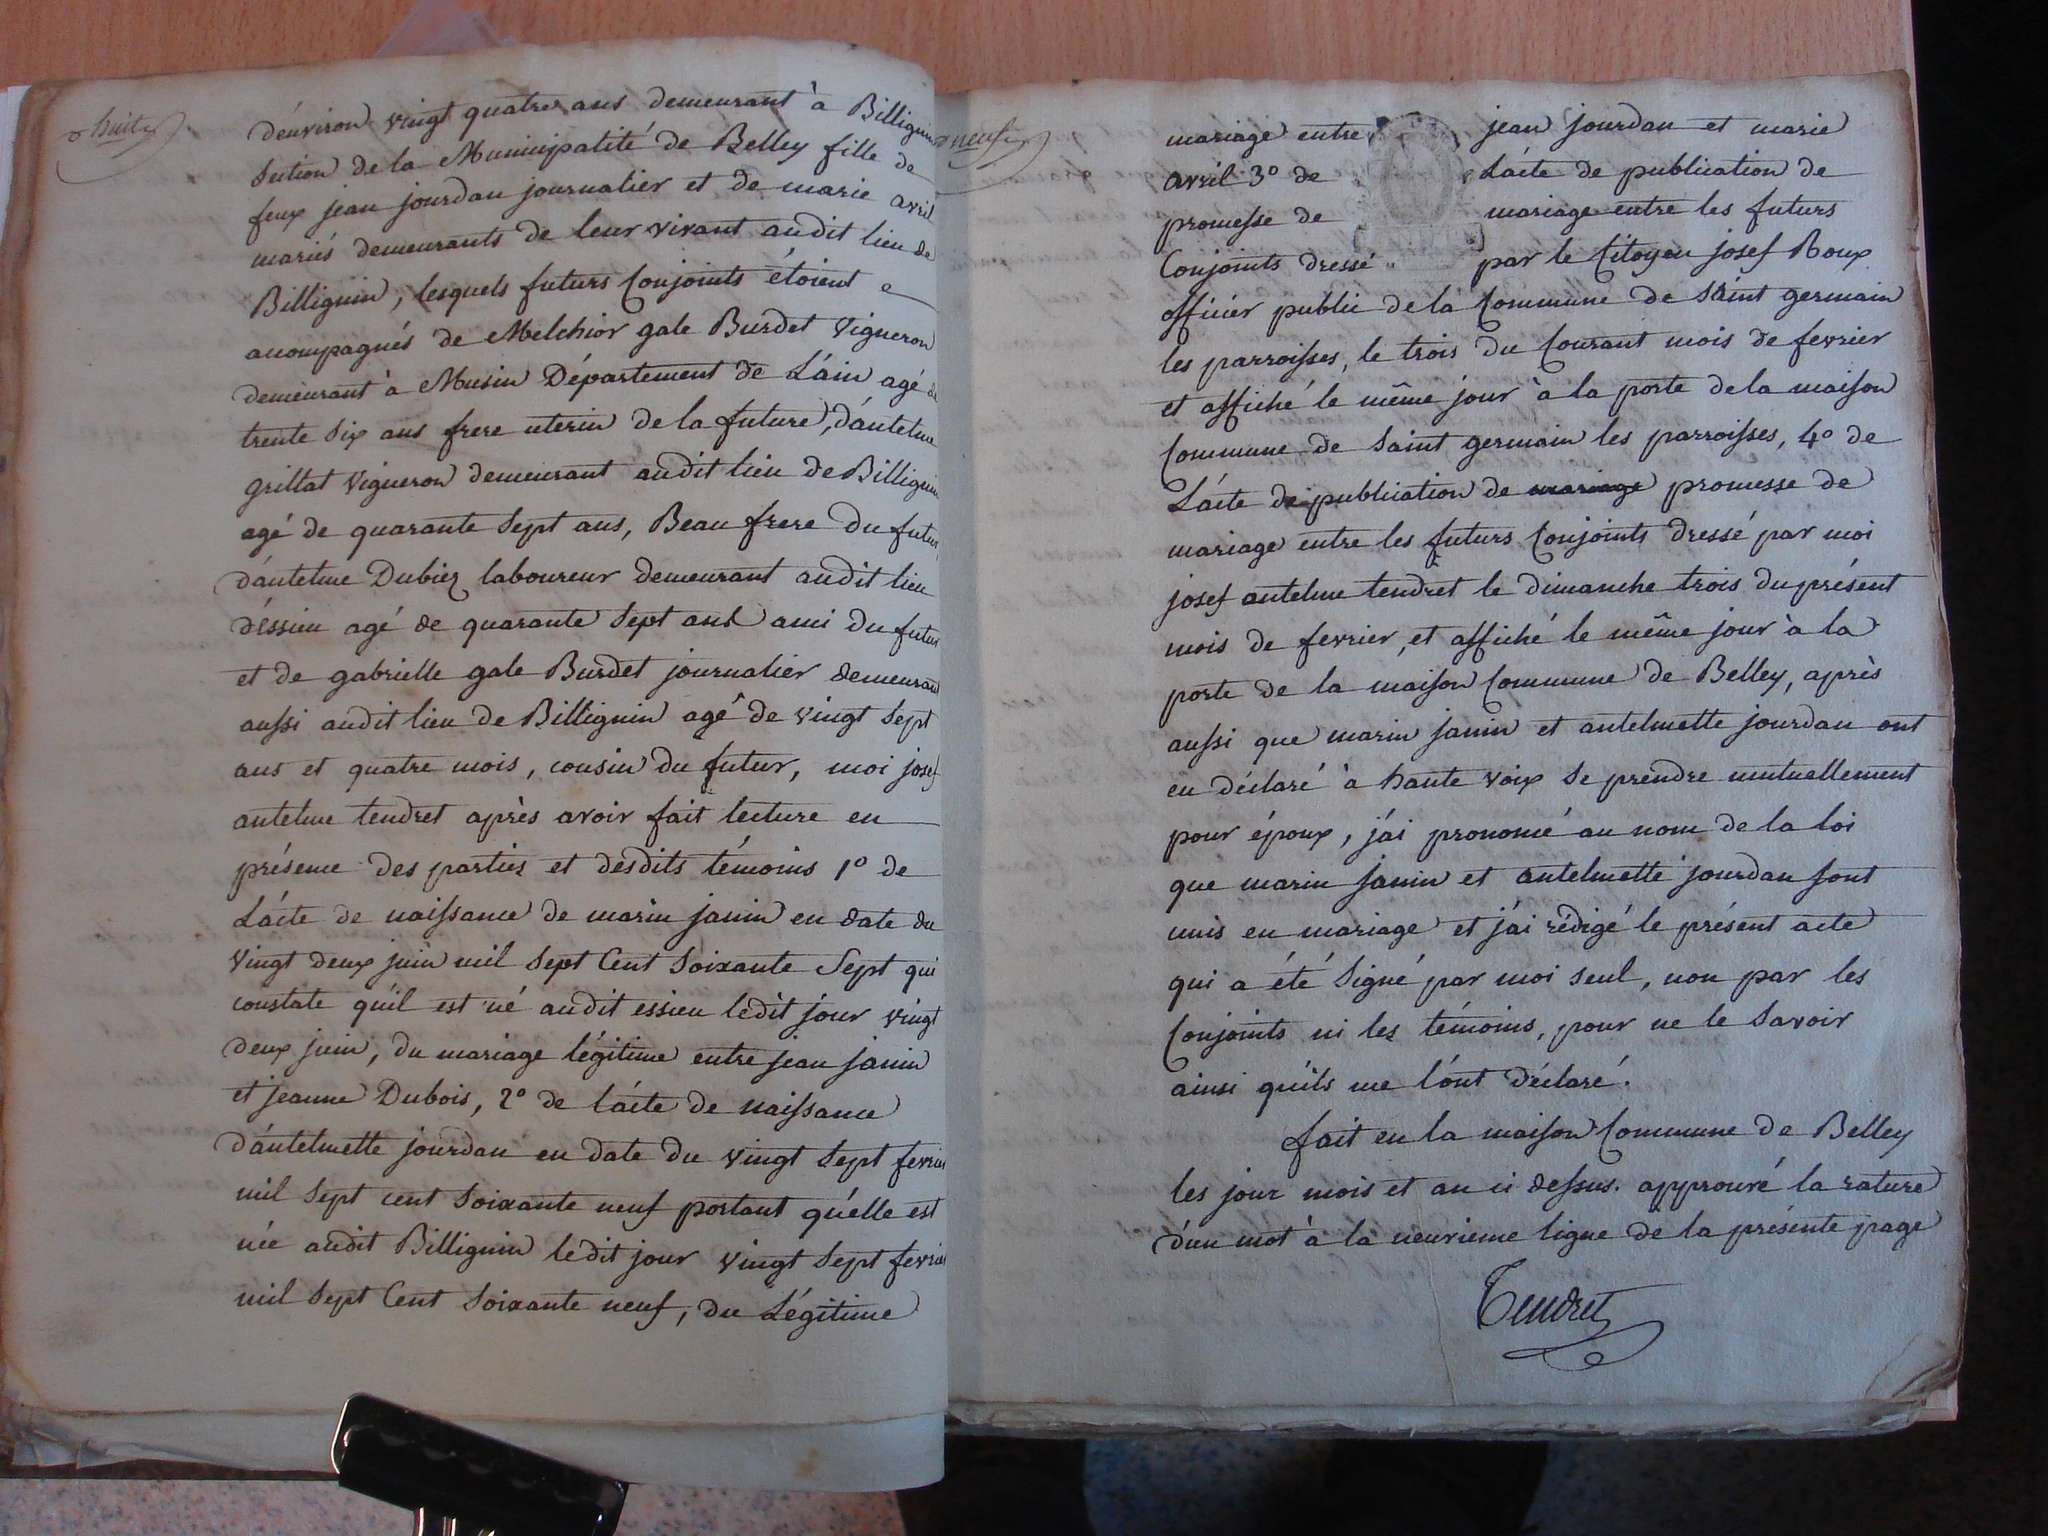 huit
d'environ vingt quatre ans demeurant à Billignin
section de la Municipalité de Belley fille de
feux jean jourdan journalier et de marie avril
mariés demeurants de leur vivant audit lieu de
Billignin, lesquels futurs Conjoints étoient
acompagnés de Melchior gale Burdet Vigneron
demeurant à Musin Département de L'áin agé de
trente six ans frere uterin de la future, d'antelme
grillat vigneron demeurant audit lieu de Billignin
agé de quarante sept ans, Beau frere du futur,
d'antelme Dubiez laboureur demeurant audit lieu
d'éssieu agé de quarante sept ans ami du futur
et de gabrielle gale Burdet journalier demeurant
aussi audit lieu de Billignin agé de vingt sept
ans et quatre mois, cousin du futur, moi josef
antelme tendret après avoir fait lecture en
présence des parties et desdits témoins 1º de
L'ácte de naissance de marin janin en date du
vingt deux juin mil sept Cent soixante sept qui
constate qu'il est né audit essieu ledit jour vingt
deux juin, du mariage légitime entre jean janin
et jeanne Dubois, 2º de l'ácte de naissance
d'antelmette jourdan en date du vingt sept fevrier
mil sept cent soixante neuf portant qu'elle est
née audit Billignin ledit jour vingt sept fevrier
mil sept Cent soixante neuf, du Légitime
neuf
mariage entre jean jourdan et marie
avril 3º de L'ácte de publication de
promesse de mariage entre les futurs
Conjoints dressé par le Citoyen josef Roux
officier public de la Commune de saint germain
les parroisses, le trois du Courant mois de fevrier
et affiché le même jour à la porte de la maison
Commune de saint germain les parroisses, 4º de
L'ácte de publication de mariage promesse de
mariage entre les futurs Conjoints dressé par moi
josef antelme tendret le dimanche trois du présent
mois de fevrier, et affiché le même jour à la
porte de la maison Commune de Belley, après
aussi que marin janin et antelmette jourdan ont
eu déclaré à haute voix se prendre mutuellement
pour époux, j'ái prononcé au nom de la loi
que marin janin et antelmette jourdan sont
unis en mariage et j'ái rédigé le présent acte
qui a été signé par moi seul, non par les
Conjoints ni les témoins, pour ne le savoir
ainsi qu'ils me l'ont déclaré.
fait en la maison Commune de Belley
les jour mois et an ci dessus. approuvé la rature
d'un mot à la neuvieme ligne de la présente page
Tendret